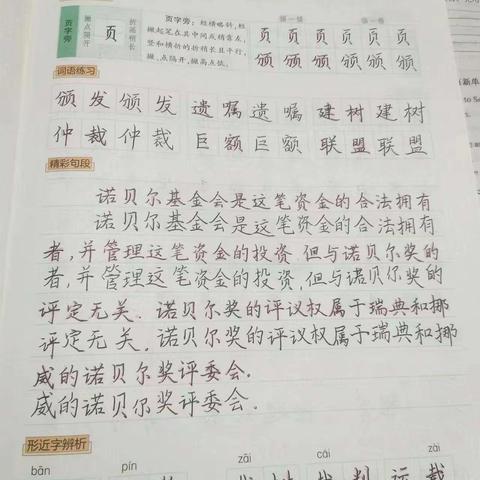 页字旁
撇点隔开
页
折画稍长
页字旁：短横略斜，短
撇起笔在其中间或稍靠左，
竖和横折的折稍长且平行，
撇、点隔开，撇高点低。
页 页 页 页 页 页
颁 颁 颁 颁 颁 颁
词语练习
颁 发 颁 发 遗 嘱 遗 嘱 建 树 建 树
仲 裁 仲 裁 巨 额 巨 额 联 盟 联 盟
精彩句段
诺贝尔基金会是这笔资金的合法拥有
诺贝尔基金会是这笔资金的合法拥有
者，并管理这笔资金的投资，但与诺贝尔奖的
者，并管理这笔资金的投资，但与诺贝尔奖的
评定无关。诺贝尔奖的评议权属于瑞典和挪
评定无关。诺贝尔奖的评议权属于瑞典和挪
威的诺贝尔奖评委会。
威的诺贝尔奖评委会。
形近字辨析
bān pín cái zāi zài